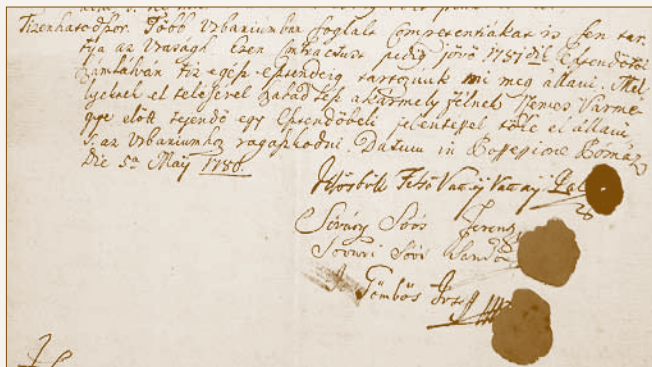 Tizenhatodszor. Több Urbariumban foglalt Competentiákat is fen tar-
tja az Uraságh. Ezen Contractust pedig jövő 1787dik Esztendőtől
számlálván tiz egész esztendeig tartozunk mi meg állani. Mel-
lyeknek el telésével szabad lész akármely félnek Nemes Várme-
gye előtt tejendő egy Esztendőbéli jelentéssel tőle el állani
s. az Urbariumhoz ragaszkodni. Datum in Possessione Bomáz
Die 5a Maij 1786.
Felső Vattay Vattay Pál
Sóvári Soós Ferenz
Sovari Soós Sandor
Gömbös Jósef